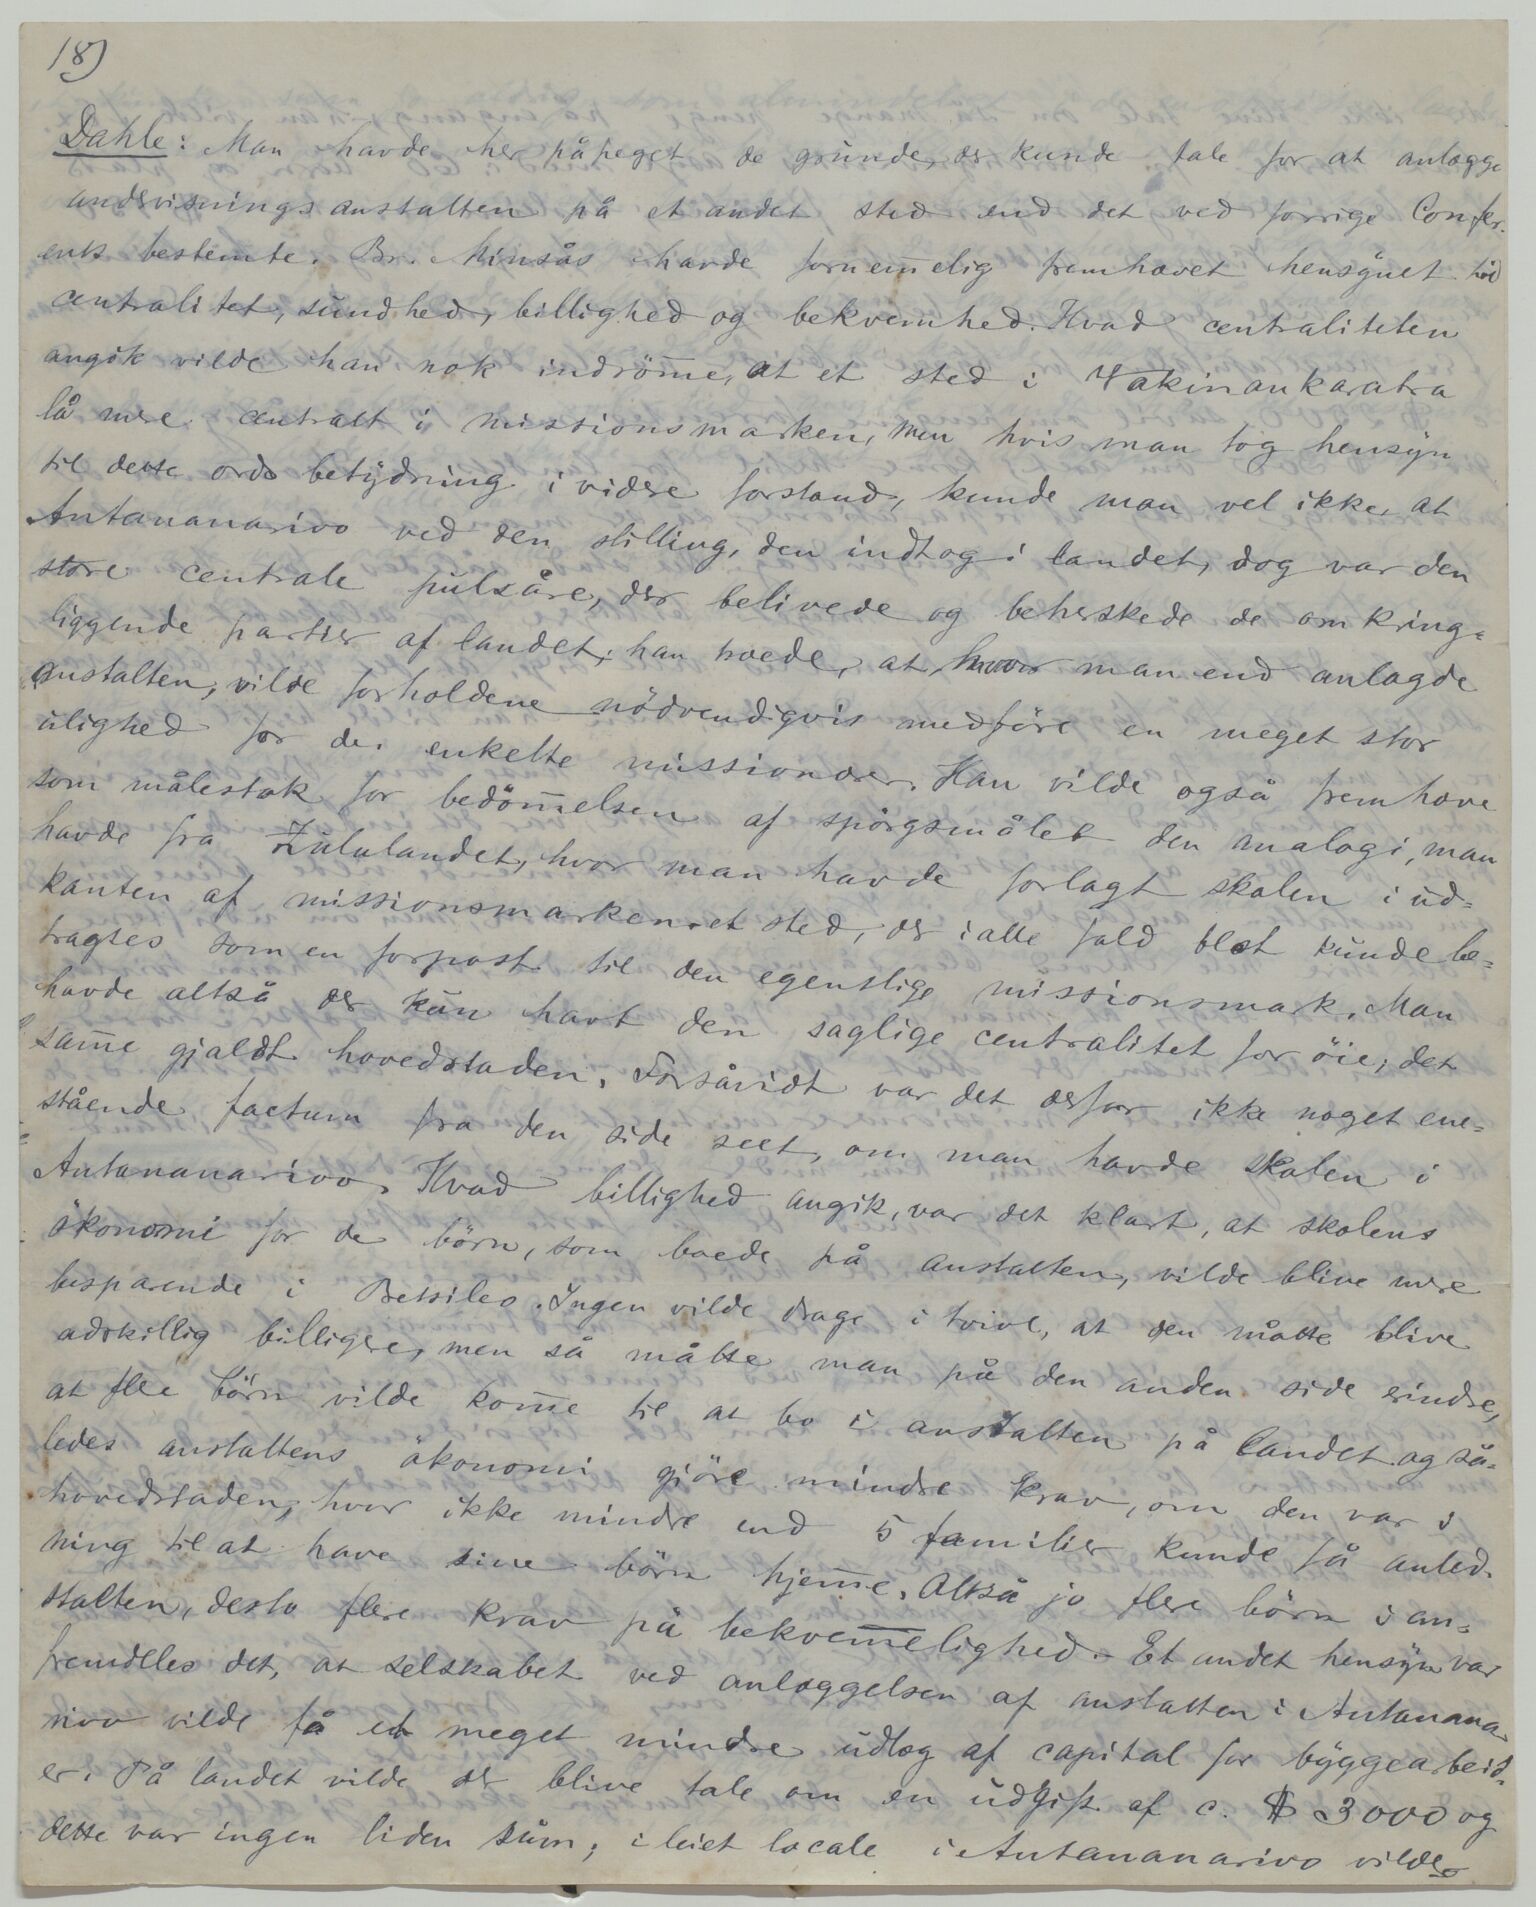 18)
Dahle: Man havde her påpeget de grunde, der kunde tale for at anlægge
undervisningsanstalten på et andet sted end det ved forrige Confer-
ents bestemte. Br. Minsås havde fornem̅elig fremhævet hensynet til
centralitet, sundhed, billighed og bekvemhed. Hvad centraliteten
angik vilde han nok indröm̅e, at et sted i Vakinankaratra
lå mere centralt i missionsmarken, men hvis man tog hensyn
til dette ords betydning i videre forstand, kunde man vel ikke, at
Antananarivo ved den stilling, den indtog i landet, dog var den
store centrale pulsåre, der belivede og beherskede de omkring=
liggende partier af landet; han troede, at hvor man end anlagde
anstalten, vilde forholdene nödvendigvis medföre en meget stor
ulighed for de enkelte missionærer. Han vilde også fremhæve
som målestok for bedöm̅elsen af spörgsmålet den analogi, man
havde fra Zululandet, hvor man havde forlagt skolen i ud=
kanten af missionsmarken et sted, der i alle fald blot kunde be=
tragtes som en forpost til den egentlige missionsmark. Man
havde altså der kun havt den saglige centralitet for öie; det
sam̅e gjaldt hovedstaden. Forsåvidt var det derfor ikke noget ene=
stående factum fra den side seet, om man havde skolen i
Antananarivo. Hvad billighed angik, var det klart, at skolens
ökonomi for de börn, som boede på anstalten, vilde blive mere
besparende i Betsileo. Ingen vilde drage i tvivl, at den måtte blive
adskillig billigere, men så måtte man på den anden side erindre,
at flere börn vilde kom̅e til at bo i anstalten på landet og så=
ledes anstaltens ökonomi gjöre mindre krav, om den var i
hovedstaden, hvor ikke mindre end 5 familier kunde få anled-
ning til at have sine börn hjem̅e. Altså jo flere börn i an=
stalten, desto flere krav på bekvem̅elighed. - Et andet hensyn var
fremdeles det, at selskabet ved anlæggelsen af anstalten i Antanana
rivo vilde få et meget mindre udlæg af capital for byggearbeid-
er. På landet vilde der blive tale om en udgift af c. $ 3000 og
dette var ingen liden sum; i leiet locale i Antananarivo vilde